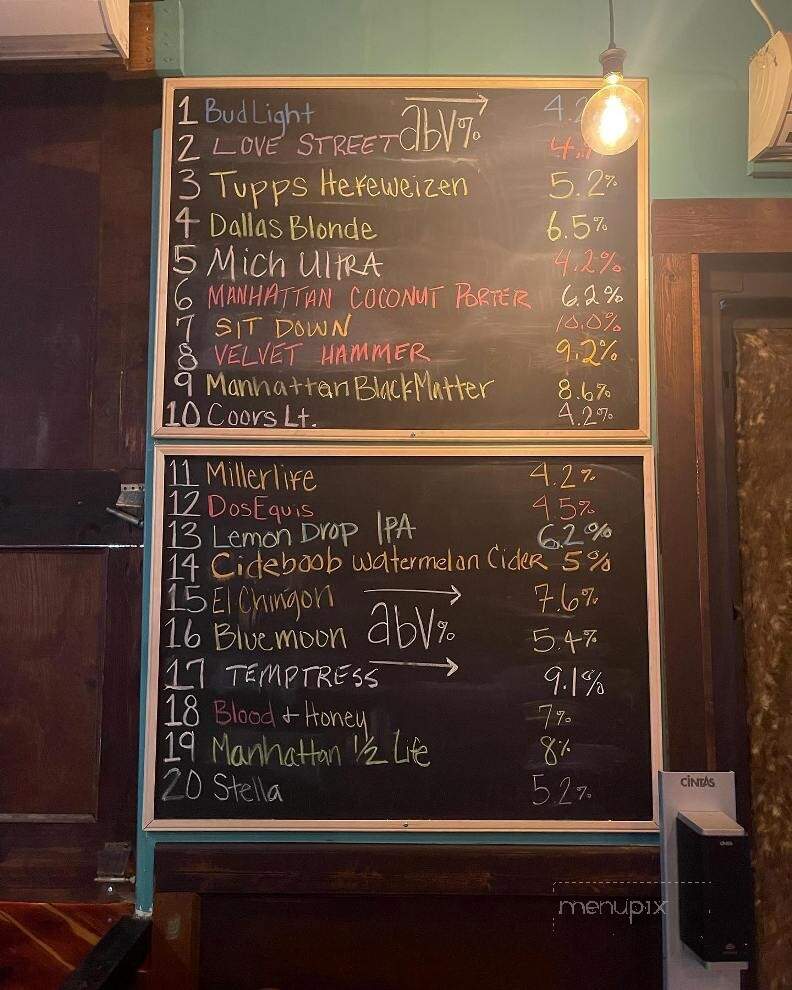 1 Bud Light 4.2
abv%
2 LOVE STREET 4.
3 Tupps Hefeweizen 5.2%
4 Dallas Blonde 6.5%
5 Mich UltRA 4.2%
6 MANHATTAN COCONUT PORTER 6.2%
7 SIT DOWN 10.0%
8 VELVET HAMMER 9.2%
9 Manhattan Black Matter 8.6%
10 Coors Lt. 4.2%
11 Millerlife 4.2%
12 Dos Equis 4.5%
13 Lemon Drop IPA 6.2%
14 Cideboob watermelan Cider 5%
15 El Chingon 7.6%
16 Bluemoon abv% 5.4%
17 TEMPTRESS 9.1%
18 Blood & Honey 7%
19 Manhattan 1/2 Life 8%
20 Stella 5.2%
CINTAS
menupix